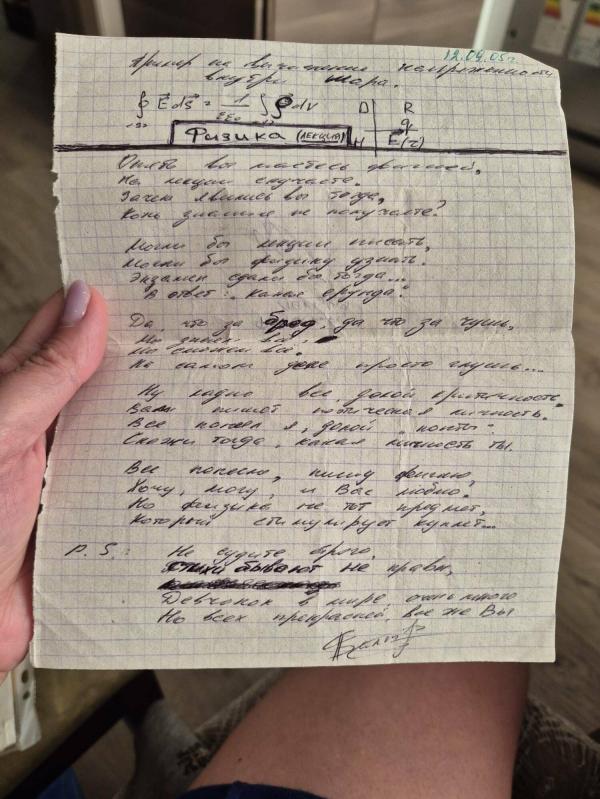 12.04.05г.
Пример на вычисление напряженности
внутри шара.
∮ E⃗ds⃗ = 1/εε₀ ∫∫ρdv
D R
q
H E⃗(r)
Физика (лекция)
Опять вы маетесь фигнёй,
На лекции скучаете.
Зачем явились вы тогда,
Коль знания не получаете?
Могли бы лекции писать,
Могли бы физику узнать.
Экзамен сдали бы тогда...
В ответ: "Какая ерунда".
Да, что за бред, да что за чушь,
Мы знаем всё,
Мы сможем всё.
На самом деле просто глушь...
Ну ладно все, долой критичность
Вам пишет поэтическая личность.
Все понял я, долой "понты"
Скажи тогда, какая личность ты.
Все понесло, пишу фигню,
Хочу, могу, и Вас люблю.
Но физика не тот предмет,
Который стимулирует куплет...
P.S.: Не судите строго,
Стихи бывают не правы,
Девчонок в мире очень много
Но всех прекрасней, все же Вы